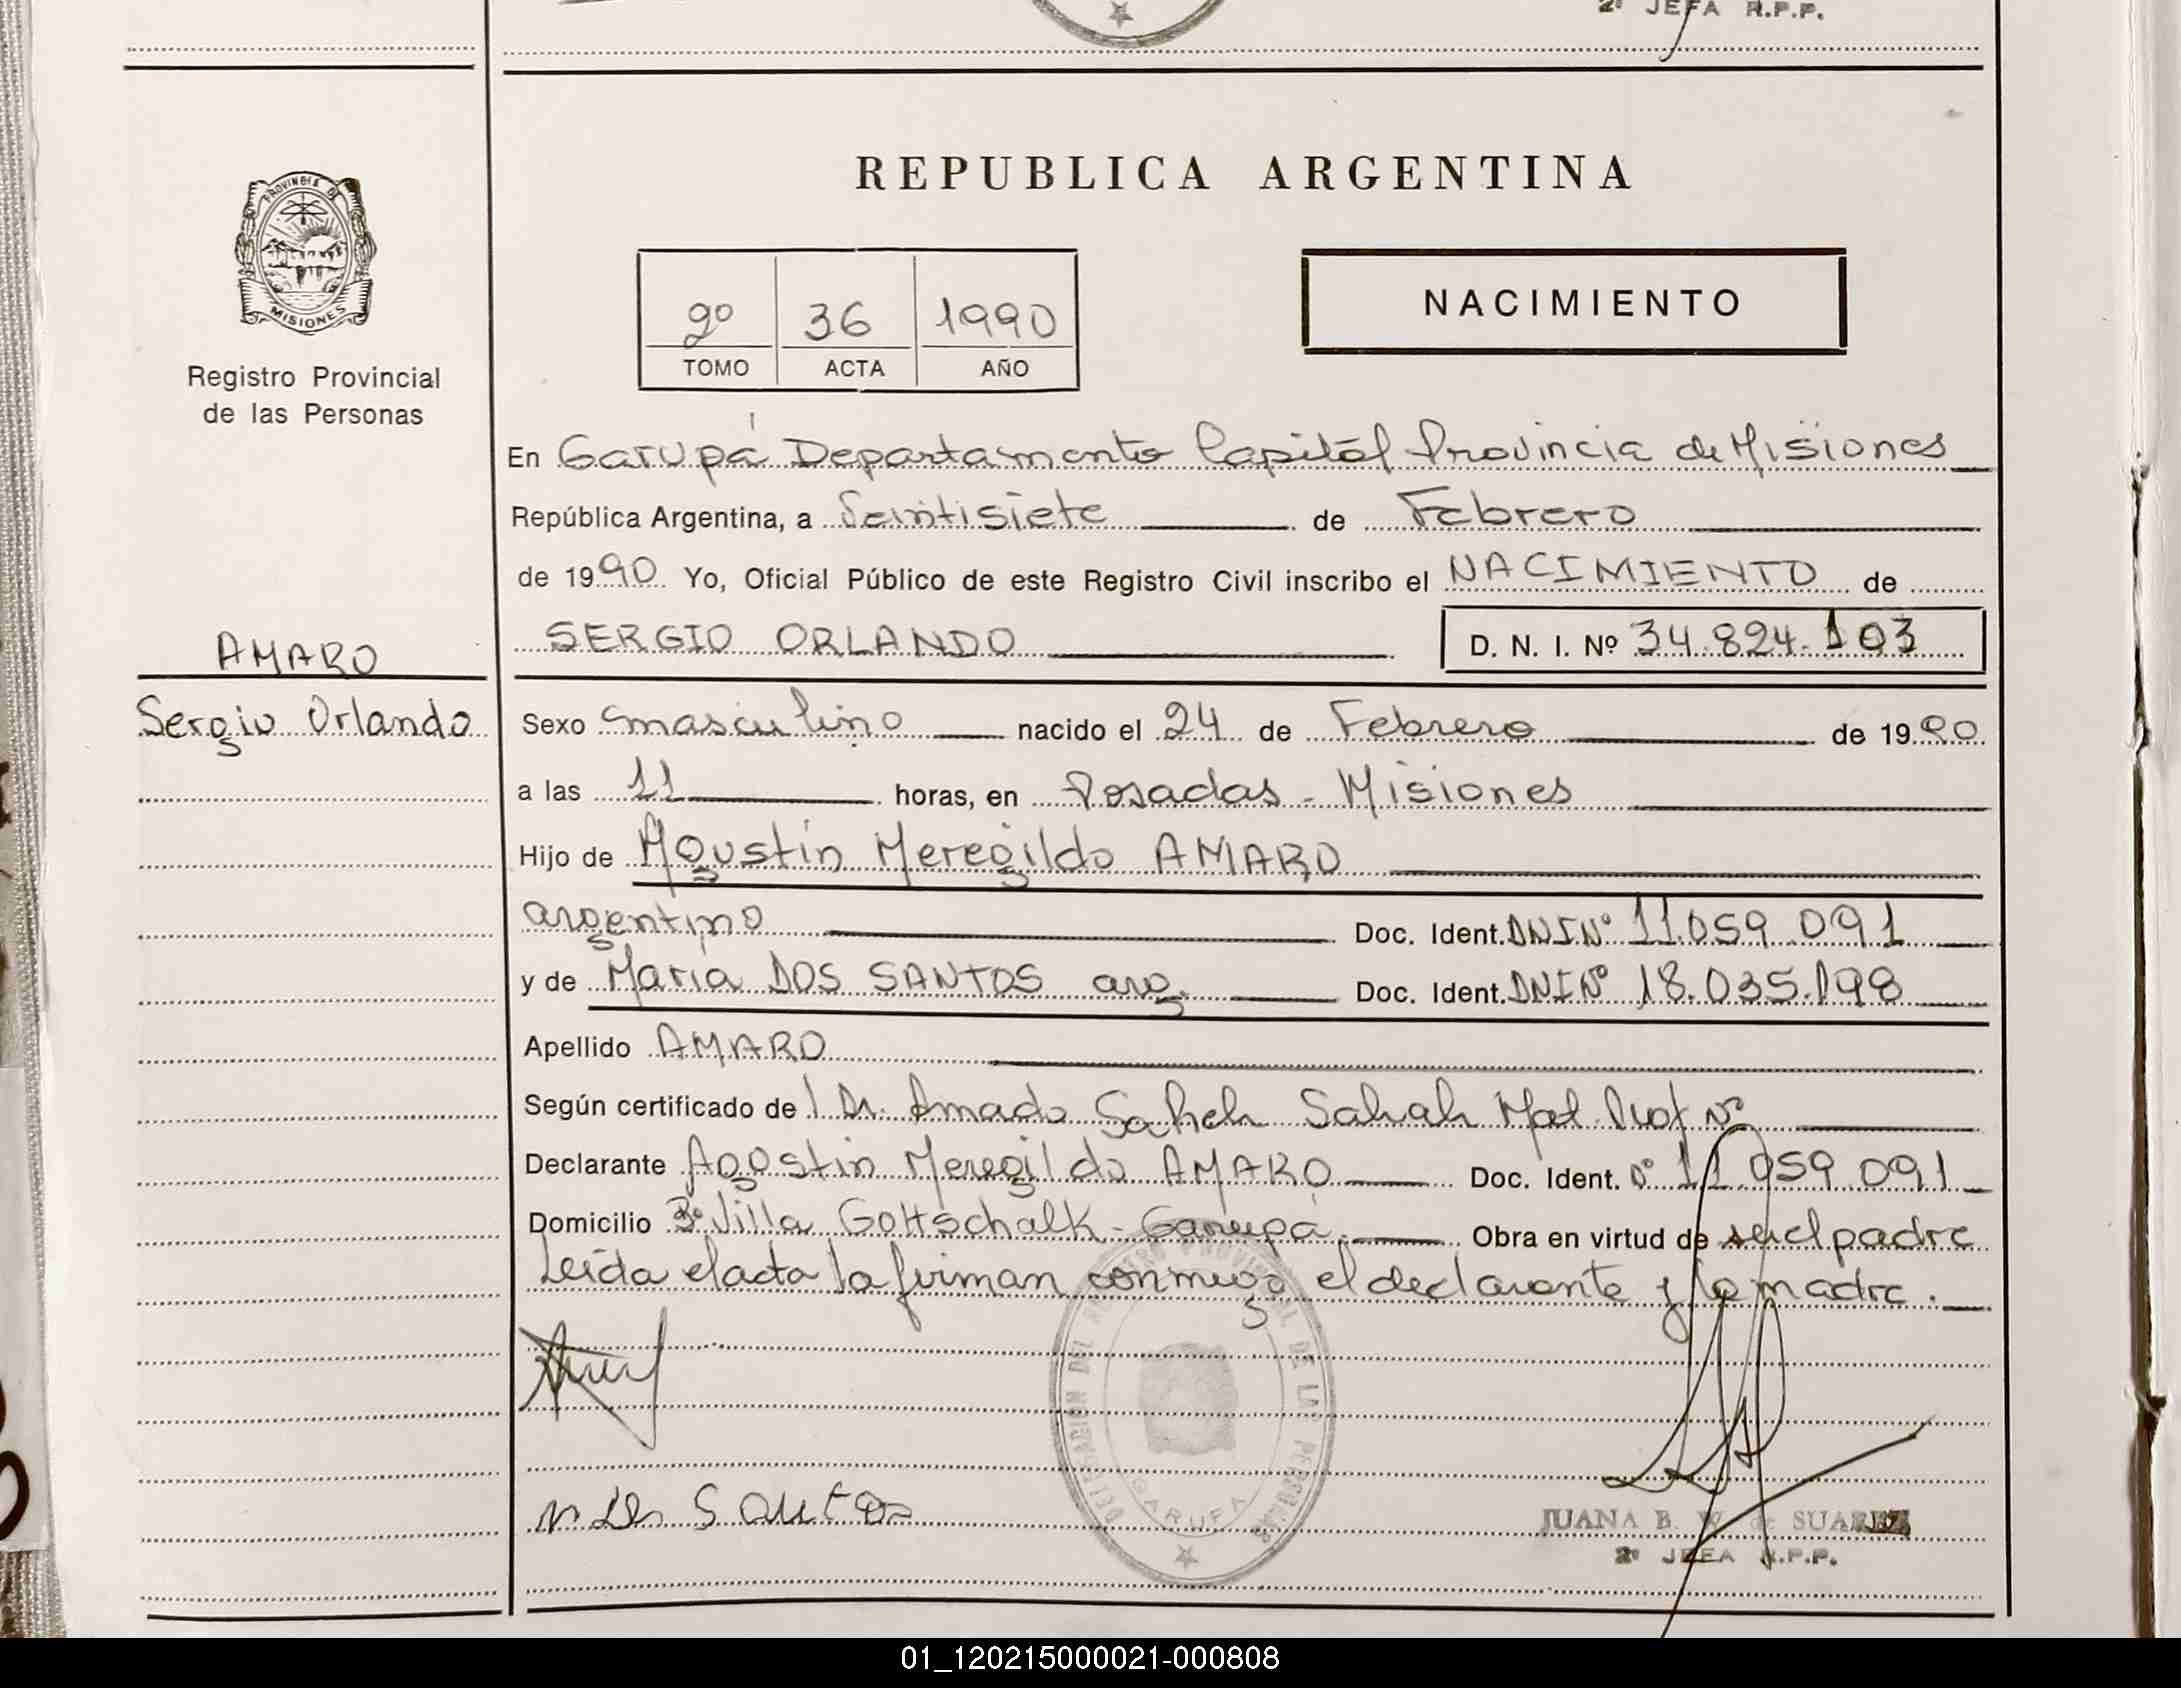 2º JEFA R.P.P.
PROVINCIA DE
MISIONES
Registro Provincial
de las Personas
REPUBLICA ARGENTINA
2º 36 1990
TOMO ACTA AÑO
NACIMIENTO
En Garupá Departamento Capital Provincia de Misiones
República Argentina, a Veintisiete de Febrero
de 1990 Yo, Oficial Público de este Registro Civil inscribo el NACIMIENTO de
SERGIO ORLANDO D. N. I. Nº 34.824.103
AMARO
Sergio Orlando
Sexo masculino nacido el 24 de Febrero de 1990
a las 11 horas, en Posadas - Misiones
Hijo de Agustín Meregildo AMARO
argentino Doc. Ident. DNI Nº 11.059.091
y de María DOS SANTOS arg. Doc. Ident. DNI Nº 18.035.198
Apellido AMARO
Según certificado del Dr. Amado Saheh Sahah Mat. Prof Nº
Declarante Agostin Meregildo AMARO Doc. Ident. Nº 11.059.091
Domicilio Bº Villa Gottschalk - Garupá. Obra en virtud de ser el padre
Leída el acta la firman conmigo el declarante y la madre.
DELEGACION DEL REGISTRO PROVINCIAL DE LAS PERSONAS
GARUPA
Dos Santos
JUANA B. W. de SUAREZ
2º JEFA R.P.P.
01_120215000021-000808